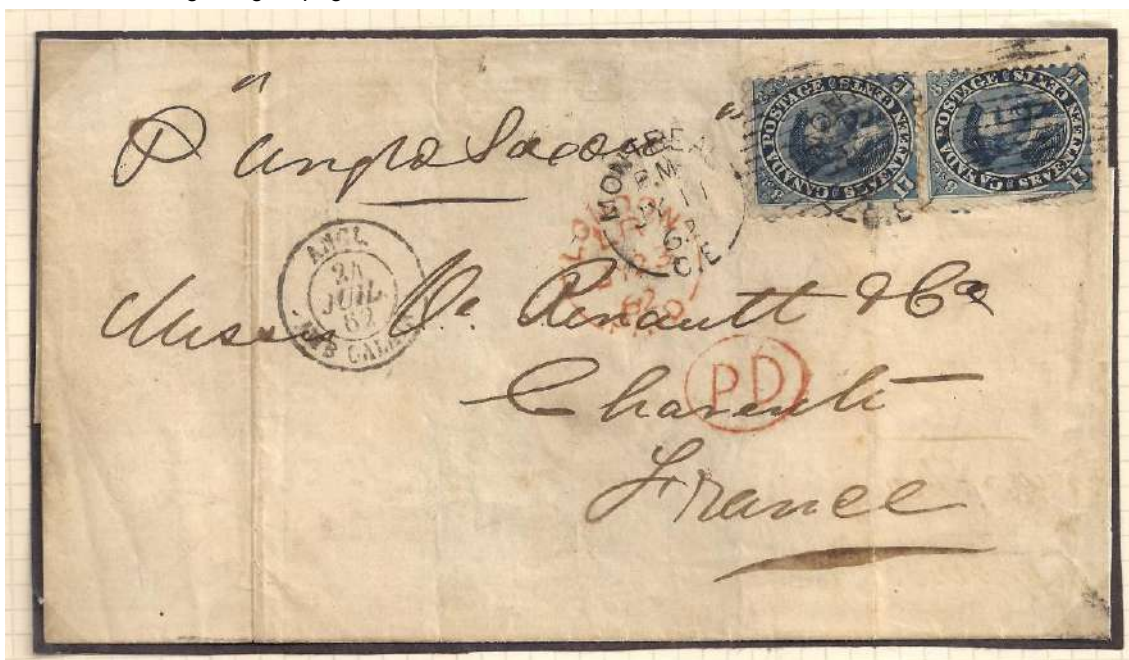 P "Anglo Saxon"
CANADA POSTAGE SEVENTEEN CENTS
CANADA POSTAGE SEVENTEEN CENTS
MONTREAL
C.E
LONDON
62
PAID
ANGL.
24
JUIL.
62
CALAIS
Messrs Renault & Co
PD
Charente
France